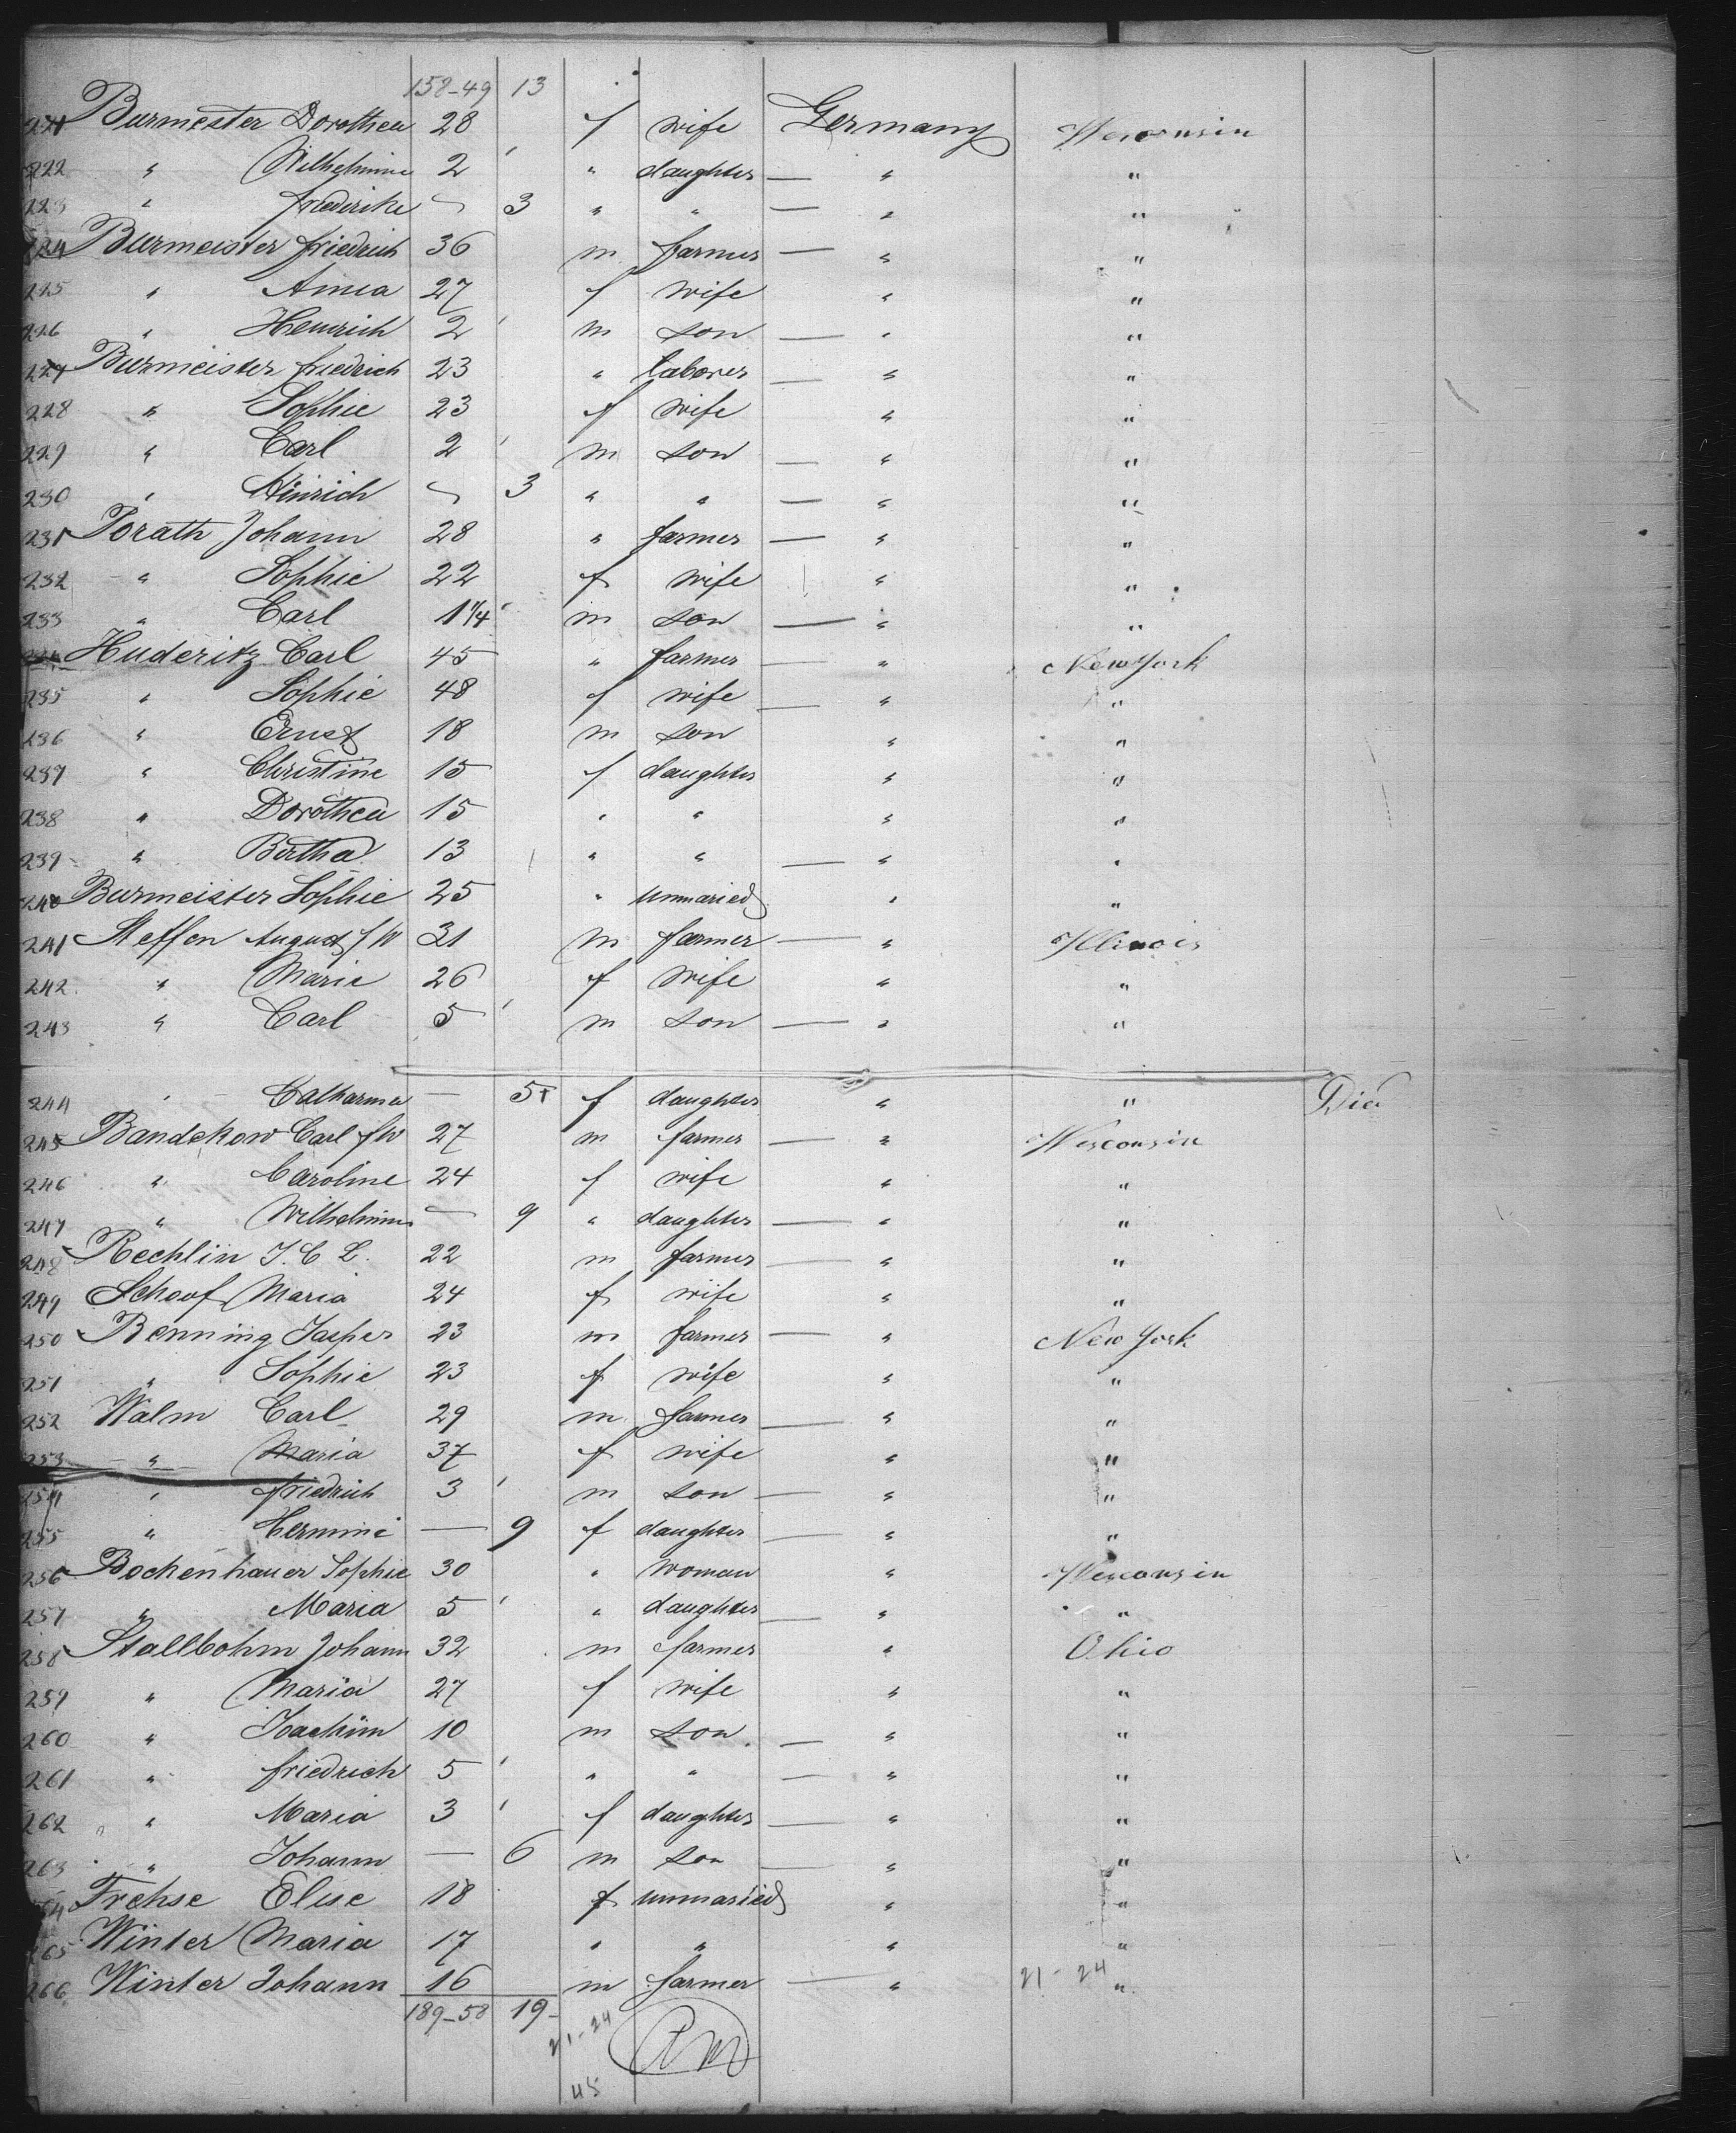 158-49 13
221 Burmester Dorothea 28 f wife Germany Wisconsin
222 " Wilhelmine 2 ' " daughter — " "
223 " Friederike 3 " " — " "
224 Burmeister Friedrich 36 m farmer — " "
225 " Anna 27 f wife " "
226 " Heinrich 2 ' m son — " "
227 Burmeister Friedrich 23 " laborer — " "
228 " Sophie 23 f wife " "
229 " Carl 2 ' m son — " "
230 " Hinrich 3 " " — " "
231 Porath Johann 28 " farmer — " "
232 " Sophie 22 f wife " "
233 " Carl 1 1/4 ' m son — " "
Huderitz Carl 45 " farmer — " New York
235 " Sophie 48 f wife — " "
236 " Ernst 18 m son " "
237 " Christine 15 f daughter " "
238 " Dorothea 15 " " " "
239 " Bertha 13 " " — " "
240 Burmeister Sophie 25 " unmaried " "
241 Steffen August f W 31 m farmer — " Illinois
242 " Marie 26 f wife " "
243 " Carl 5 ' m son — " "
244 " Catharina — 5+ f daughter " " Died
245 Bandekow Carl f W 27 m farmer — " Wisconsin
246 " Caroline 24 f wife " "
247 " Wilhelmine — 9 " daughter — " "
248 Rechlin J. C. L. 22 m farmer — " "
249 Schoof Maria 24 f wife " "
250 Benning Jasper 23 m farmer — " New York
251 " Sophie 23 f wife " "
252 Walm Carl 29 m farmer — " "
253 " Maria 37 f wife " "
254 " Friedrich 3 ' m son — " "
255 " Hermine — 9 f daughter — " "
256 Bockenhauer Sophie 30 " woman " Wisconsin
257 " Maria 5 ' " daughter — " "
258 Stallbohm Johann 32 m farmer " Ohio
259 " Maria 27 f wife " "
260 " Joachim 10 m son — " "
261 " Friedrich 5 ' " " — " "
262 " Maria 3 ' f daughter — " "
263 " Johann — 6 m son — " "
264 Frehse Elise 18 f unmaried " "
265 Winter Maria 17 " " " "
266 Winter Johann 16 m farmer — " 21-24 "
189-58 19-
21-24
45